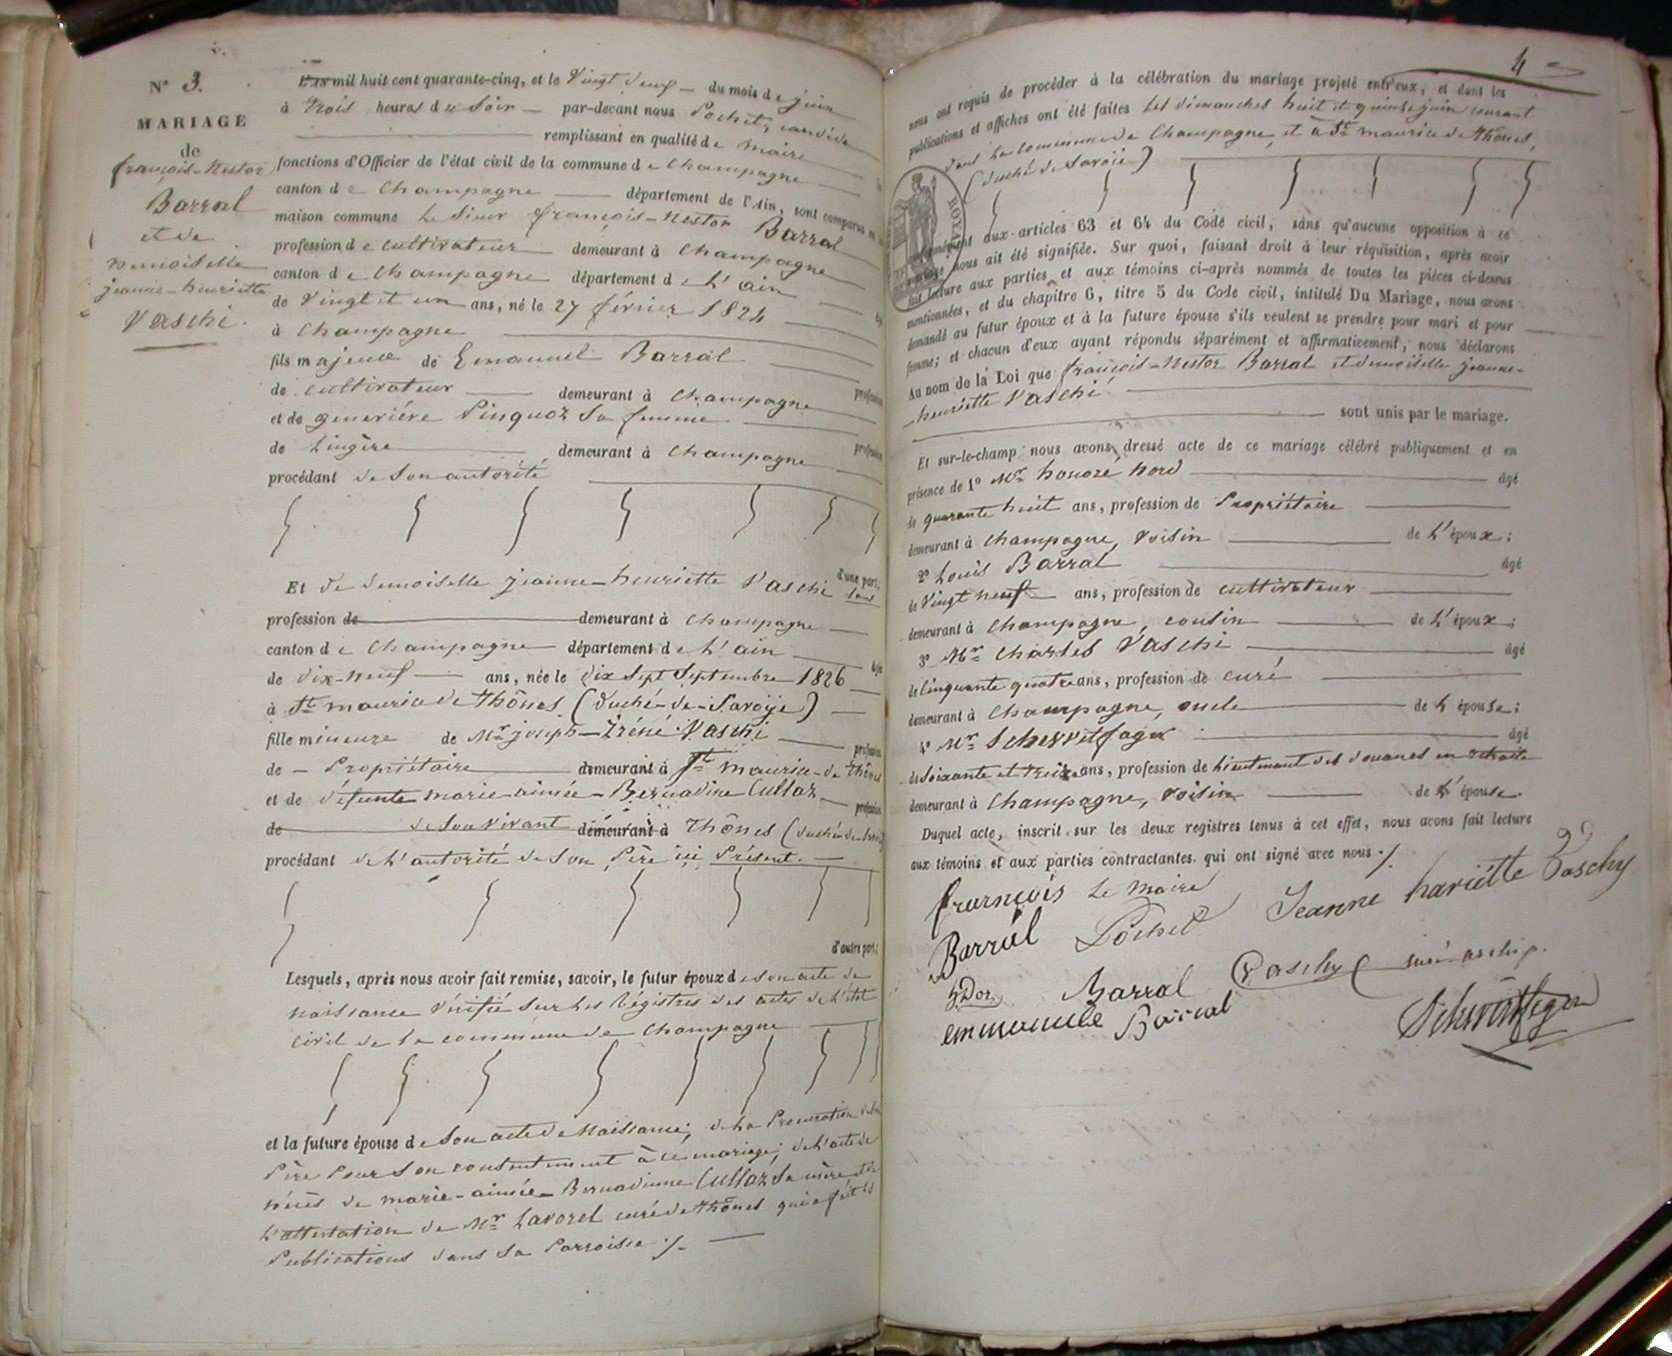 N° 3.
MARIAGE
de
françois-Nestor
Barral
et de
demoiselle
jeanne-henriette
Vaschi.
L'an mil huit cent quarante-cinq, et le Vingt neuf du mois de juin
à trois heures du Soir par-devant nous Pochet,
remplissant en qualité de maire
fonctions d'Officier de l'état civil de la commune de Champagne
canton de Champagne département de l'Ain, sont comparus en
maison commune Le Sieur françois-Nestor Barral
profession de cultivateur demeurant à Champagne
canton de Champagne département de L'ain
de Vingt et un ans, né le 27 février 1824
à Champagne
fils majeur de Emanuel Barral
profession
de cultivateur demeurant à Champagne
et de geneviére Pinquoz Sa femme
profession
de Lingère demeurant à Champagne
procédant de Son autorité
d'une part;
Et de demoiselle jeanne-henriette Vaschi Sans
profession de demeurant à Champagne
canton de Champagne département de L'ain âgée
de dix-neuf ans, née le dix Sept Septembre 1826
à St maurice de Thônes (Duché-de-Savoÿe)
fille mineure de Mr joseph-Iréné Vaschi profession
de Propriétaire demeurant à St maurice-de Thônes
et de défunte marie aimée-Bernadine Cullaz profession
de de Son vivant demeurant à Thônes (duché de Savoie)
procédant de L'autorité de Son Père ici Présent.
d'autre part;
Lesquels, après nous avoir fait remise, savoir, le futur époux de son acte de
naissance Vérifié Sur Les Régistres des actes de L'état
civil de La commune de Champagne
et la future épouse de Son acte de Naissance; de La Procuration de Son
Père Pour Son consentement à ce mariage; de L'acte de
décès de marie-aimée-Bernadinne Cullaz Sa mère et de
L'attestation de Mr Lavorel curé de Thônes qui a fait les
Publications dans Sa Parroisse ./.
4
nous ont requis de procéder à la célébration du mariage projeté entr'eux, et dont les
publications et affiches ont été faites les dimanches huit et quinze juin courant
dans La commune de Champagne et à St maurice de Thônes,
(duché de Savoie)
ROYAL
conformément aux articles 63 et 64 du Code civil, sans qu'aucune opposition à ce
mariage nous ait été signifiée. Sur quoi, faisant droit à leur réquisition, après avoir
fait lecture aux parties et aux témoins ci-après nommés de toutes les pièces ci-dessus
mentionnées, et du chapître 6, titre 5 du Code civil, intitulé Du Mariage, nous avons
demandé au futur époux et à la future épouse s'ils veulent se prendre pour mari et pour
femme; et chacun d'eux ayant répondu séparément et affirmativement, nous déclarons
Au nom de la Loi que françois-Nestor Barral et demoiselle jeanne-
henriette Vaschi
sont unis par le mariage.
Et sur-le-champ nous avons dressé acte de ce mariage célébré publiquement et en
présence de 1° Mr honoré Nord âgé
de quarante huit ans, profession de Propriétaire
demeurant à Champagne, Voisin de L'époux;
2° Louis Barral âgé
de Vingt neuf ans, profession de cultivateur
demeurant à Champagne, cousin de L'époux;
3° Mr Charles Vaschi âgé
de Cinquante quatre ans, profession de curé
demeurant à Champagne, oncle de L'épouse;
4° Mr âgé
de Soixante et treize ans, profession de Lieutenant des douanes en retraite
demeurant à Champagne, Voisin de L'épouse.
Duquel acte, inscrit sur les deux registres tenus à cet effet, nous avons fait lecture
aux témoins et aux parties contractantes qui ont signé avec nous ./.
françois Le Maire Jeanne hariette Vaschy
Barral Pochet
Barral Vaschy curé archip.
emmanuele Barral